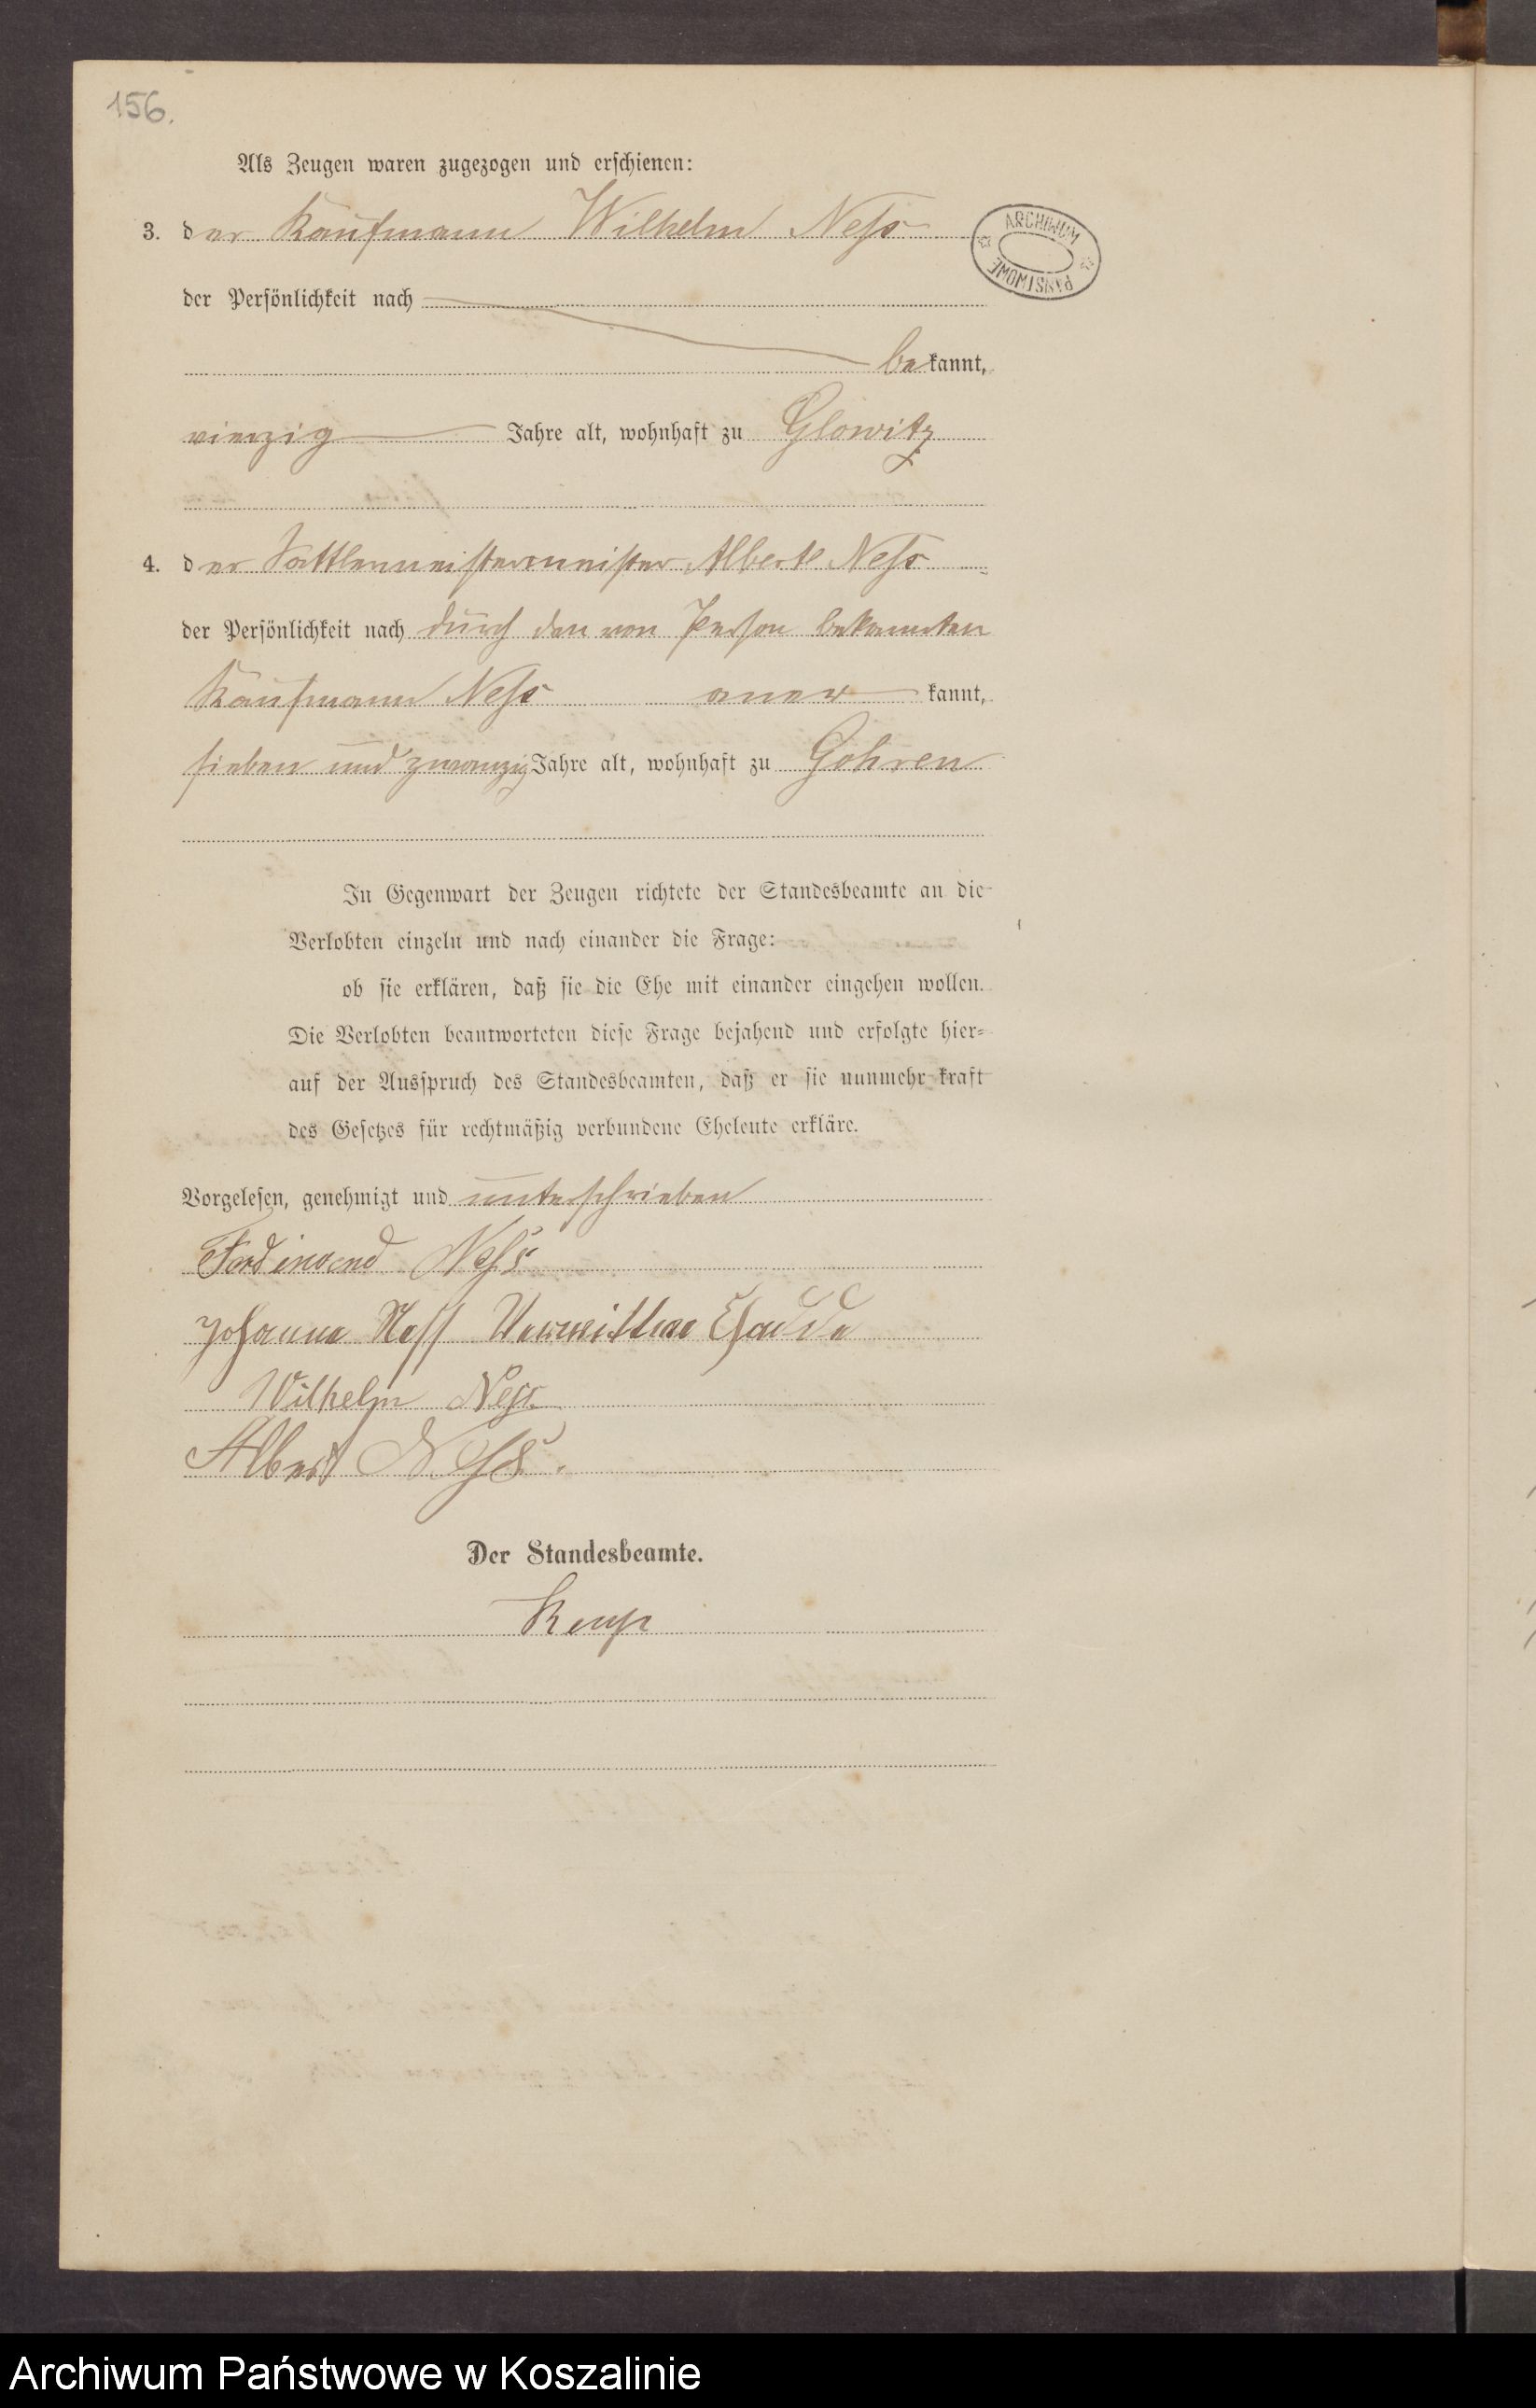 156.
Als Zeugen waren zugezogen und erschienen:
3. der Kaufmann Wilhelm Neſs
ARCHIWUM PAŃSTWOWE
der Persönlichkeit nach
bekannt,
vierzig Jahre alt, wohnhaft zu Glowitz
4. der Sattlermeistermeister Albert Neſs
der Persönlichkeit nach durch den von Person bekannten
Kaufmann Neſs aner kannt,
sieben und zwanzig Jahre alt, wohnhaft zu Gohren
In Gegenwart der Zeugen richtete der Standesbeamte an die
Verlobten einzeln und nach einander die Frage:
ob sie erklären, daß sie die Ehe mit einander eingehen wollen.
Die Verlobten beantworteten diese Frage bejahend und erfolgte hier-
auf der Ausspruch des Standesbeamten, daß er sie nunmehr kraft
des Gesetzes für rechtmäßig verbundene Eheleute erkläre.
Vorgelesen, genehmigt und unterschrieben
Ferdinand Neſs
Johanna Neſs Verwittwe
Wilhelm Neſs
Albert Neſs.
Der Standesbeamte.
Archiwum Państwowe w Koszalinie